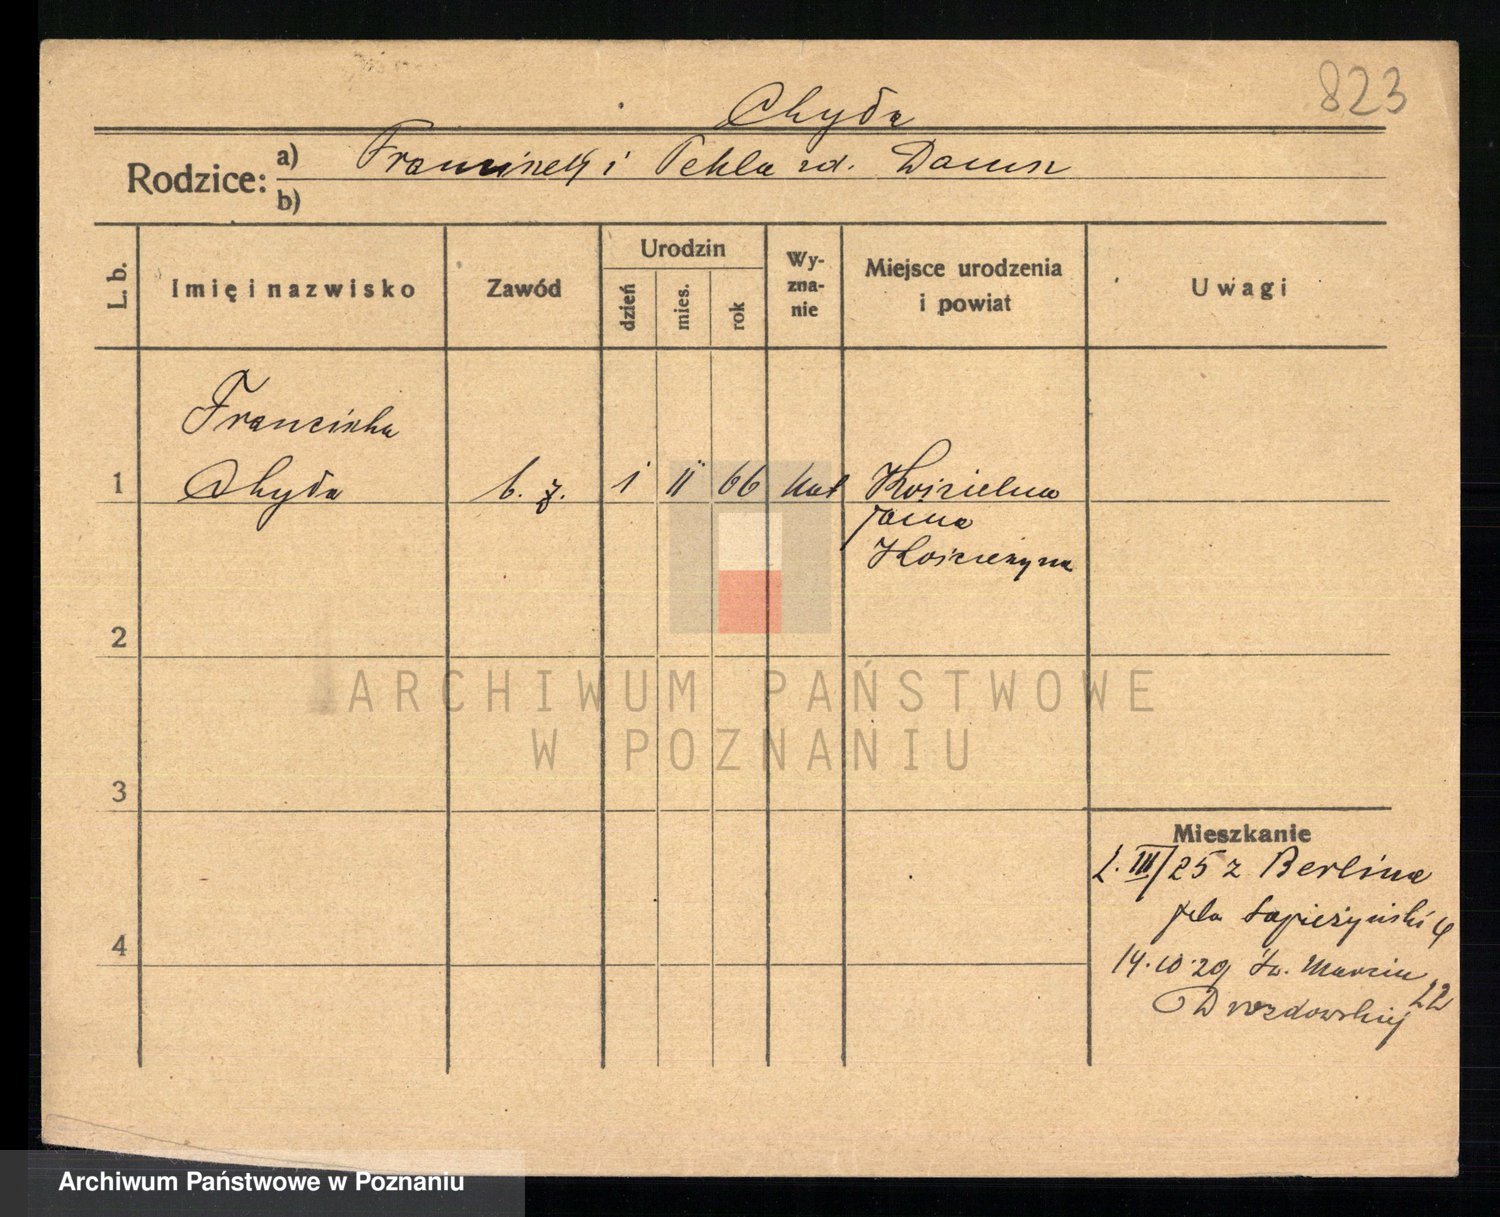 823
Chyła
Rodzice: a) Franciszek i Tekla zd. Daun
b)
L. b. Imię i nazwisko Zawód Urodzin dzień mies. rok Wy-zna-nie Miejsce urodzenia i powiat Uwagi
Franciszka
1 Chyła b. z. 1 II 66 kat Kościelna
Jama
Kościerzyna
2
3
Mieszkanie
2. III/25 z Berlina
pla Sapieżyński 4
4
14.10.29 Św. Marcin 22
Drozdowskiej
ARCHIWUM PAŃSTWOWE
W POZNANIU
Archiwum Państwowe w Poznaniu